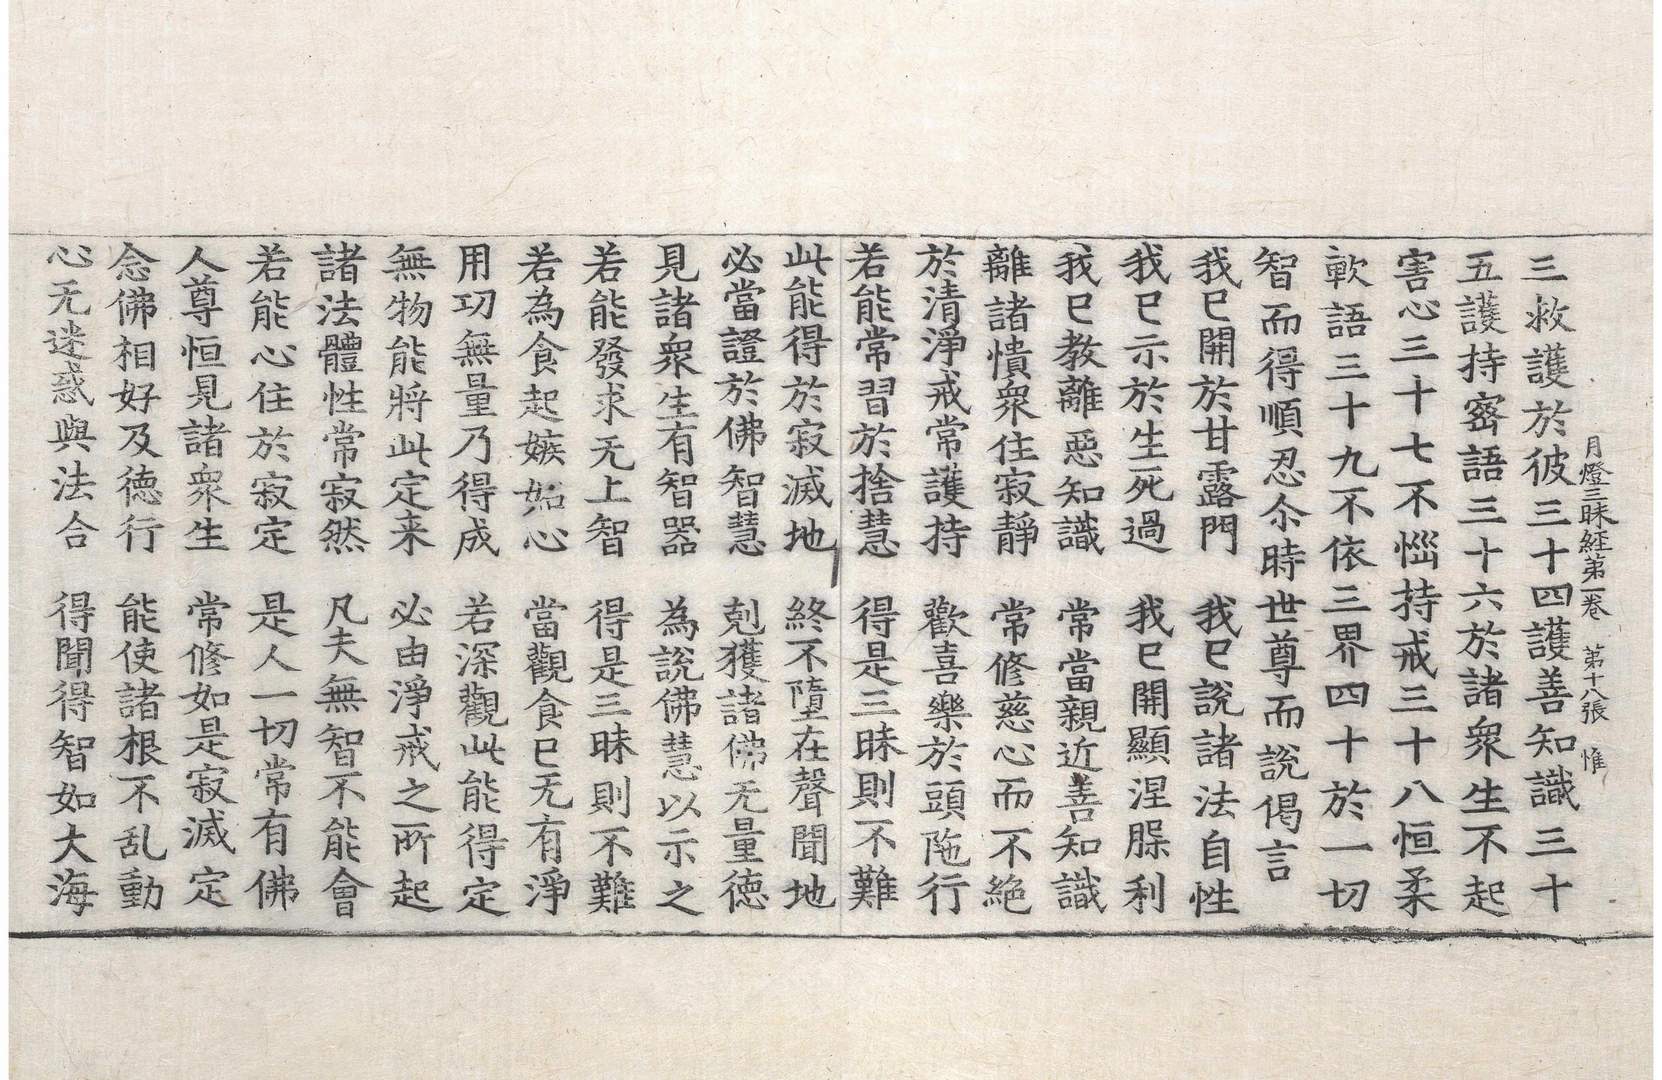 月燈三昧経第二卷 第十八張 惟
三救護於彼三十四護善知識三十
五護持密語三十六於諸衆生不起
害心三十七不惱持戒三十八恒柔
軟語三十九不依三界四十於一切
智而得順忍尒時世尊而說偈言
我已開於甘露門 我已說諸法自性
我已示於生死過 我已開顯涅槃利
我已教離惡知識 常當親近善知識
離諸憒衆住寂靜 常修慈心而不絶
於清淨戒常護持 歡喜樂於頭陁行
若能常習於捨慧 得是三昧則不難
此能得於寂滅地 終不墮在聲聞地
必當證於佛智慧 剋獲諸佛无量德
見諸衆生有智器 為說佛慧以示之
若能發求无上智 得是三昧則不難
若為食起嫉妬心 當觀食已无有淨
用功無量乃得成 若深觀此能得定
無物能將此定来 必由淨戒之所起
諸法體性常寂然 凡夫無智不能會
若能心住於寂定 是人一切常有佛
人尊恒見諸衆生 常修如是寂滅定
念佛相好及德行 能使諸根不乱動
心无迷惑與法合 得聞得智如大海